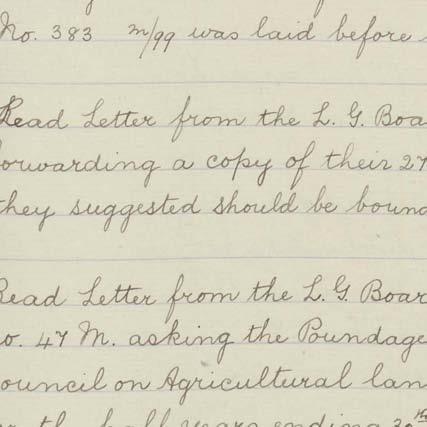 No. 383 M/99 was laid before
Read Letter from the L. G. Boa
orwarding a copy of their 27
they suggested should be boun
Read Letter from the L. G. Boar
o. 47 M. asking the Poundage
ouncil on Agricultural lan
half years ending 30th